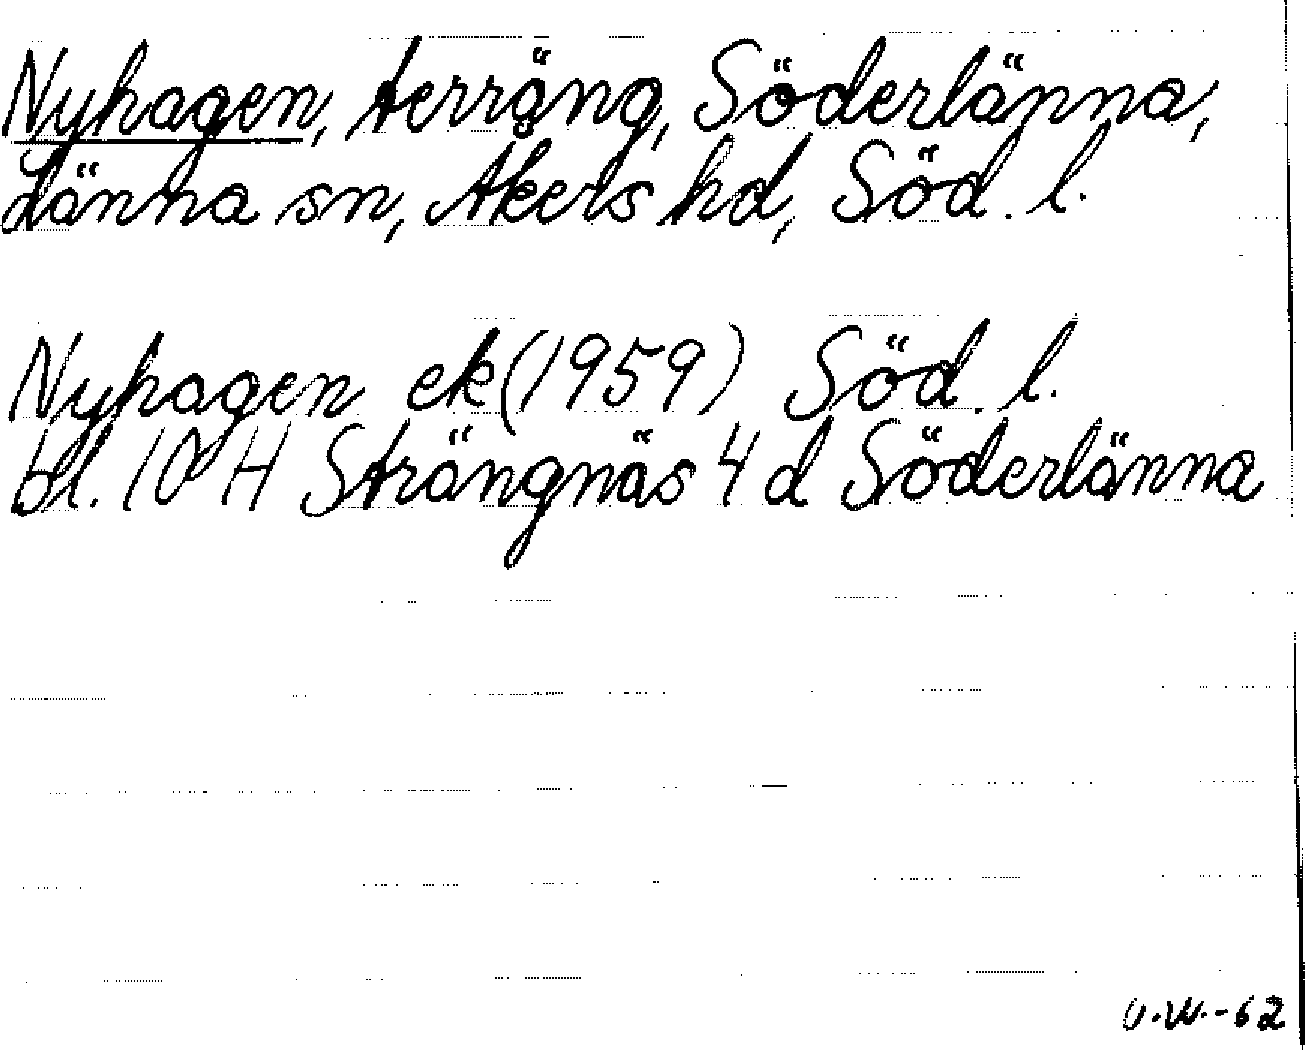 Nyhagen, terräng, Söderlänna,
Länna sn, Åkers hd, Söd. l.
Nyhagen ek (1959) Söd. l.
bl. 10 H Strängnäs 4 d Söderlänna
U.W.-62